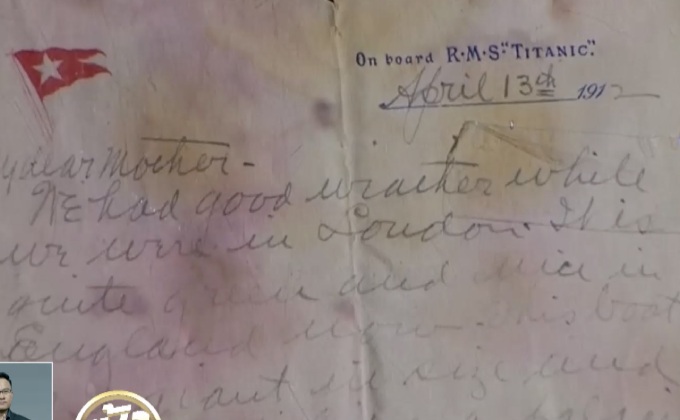 On board R·M·S·"TITANIC".
April 13th 1912
y dear Mother -
We had good weather while
we were in London. It is
quite green and nice in
England now. This boat
giant in size and